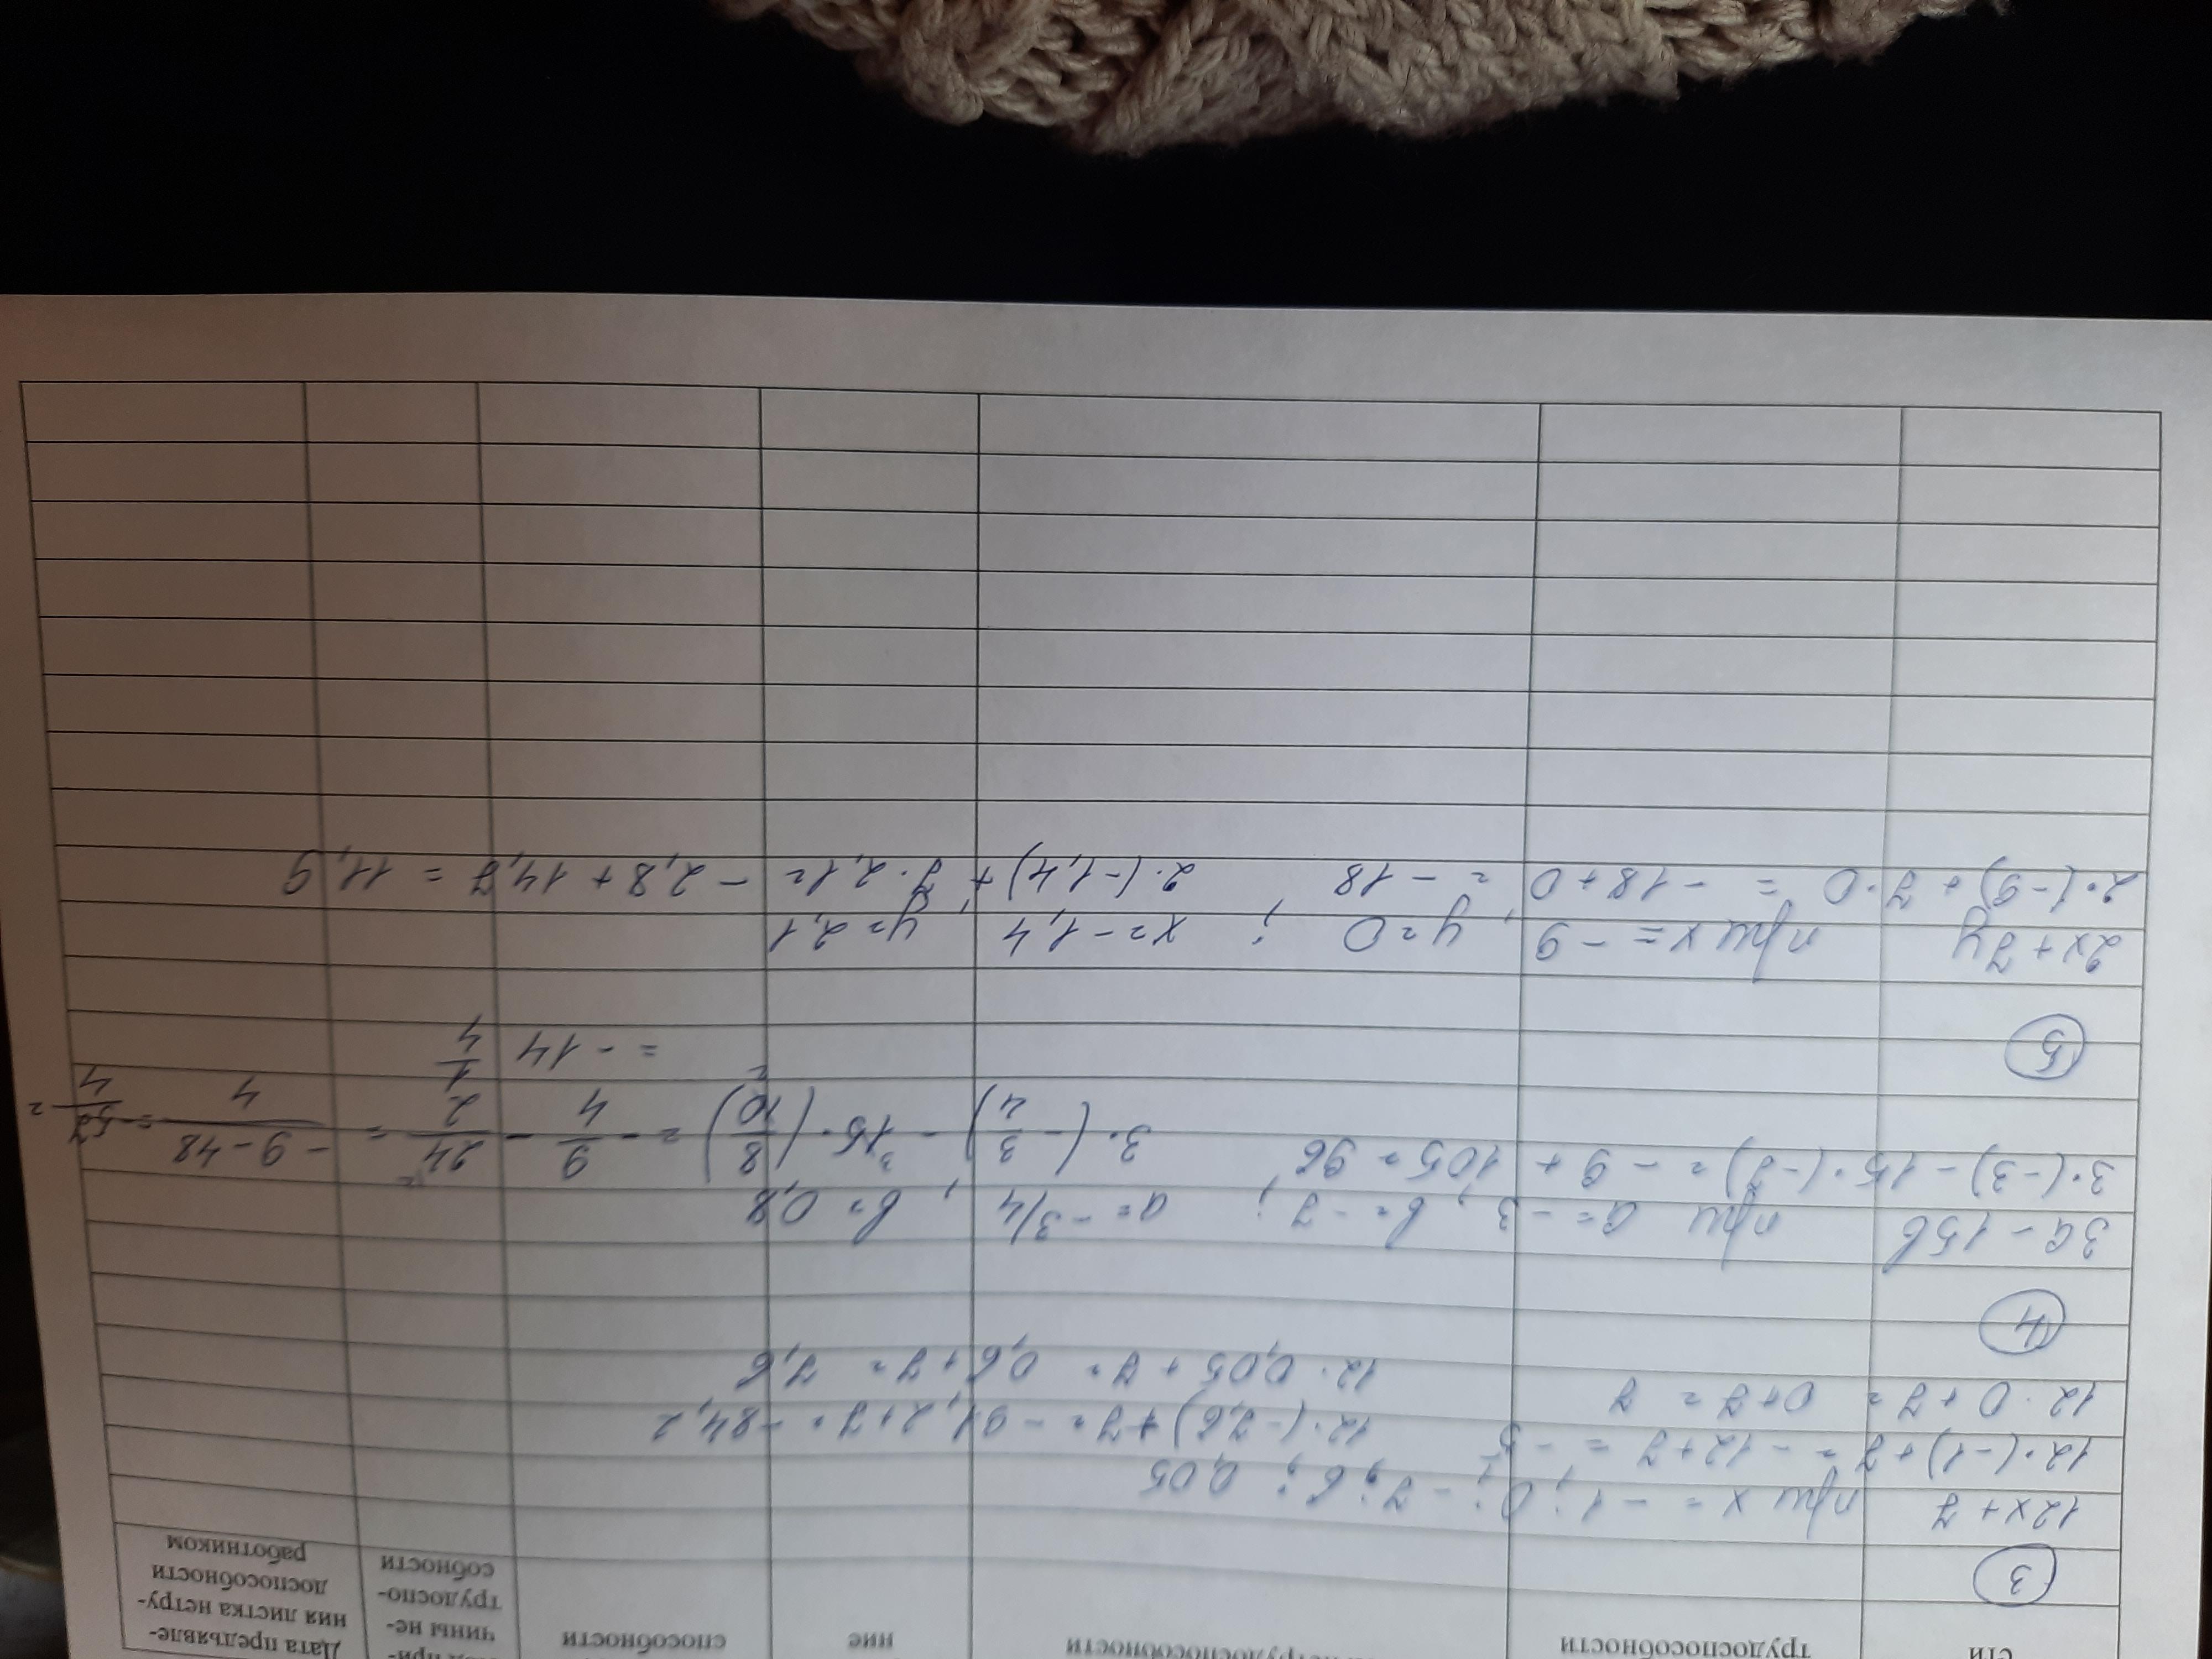 сти
трудоспособности
нетрудоспособности
ние
способности
при-
чины не-
трудоспо-
собности
Дата предъявле-
ния листка нетру-
доспособности
работником
3
12x + 7 при x = -1; 0; -7,6; 0,05
12·(-1)+7 = -12+7 = -5
12·(-7,6)+7= -91,2+7= -84,2
12·0+7= 0+7= 7
12·0,05+7= 0,6+7= 7,6
4
3a - 15b при a = -3; b= -7; a= -3/4, b= 0,8
3·(-3) - 15·(-7)= -9 + 105 = 96
3·(-3/4) - 15·(8/10) = -9/4 - 24/2 = -9-48/4 = -57/4 =
= -14 1/4
5
2x + 7y при x = -9, y=0; x= -1,4, y= 2,1
2·(-9) + 7·0 = -18+0 = -18 2·(-1,4) + 7·2,1= -2,8 + 14,7 = 11,9